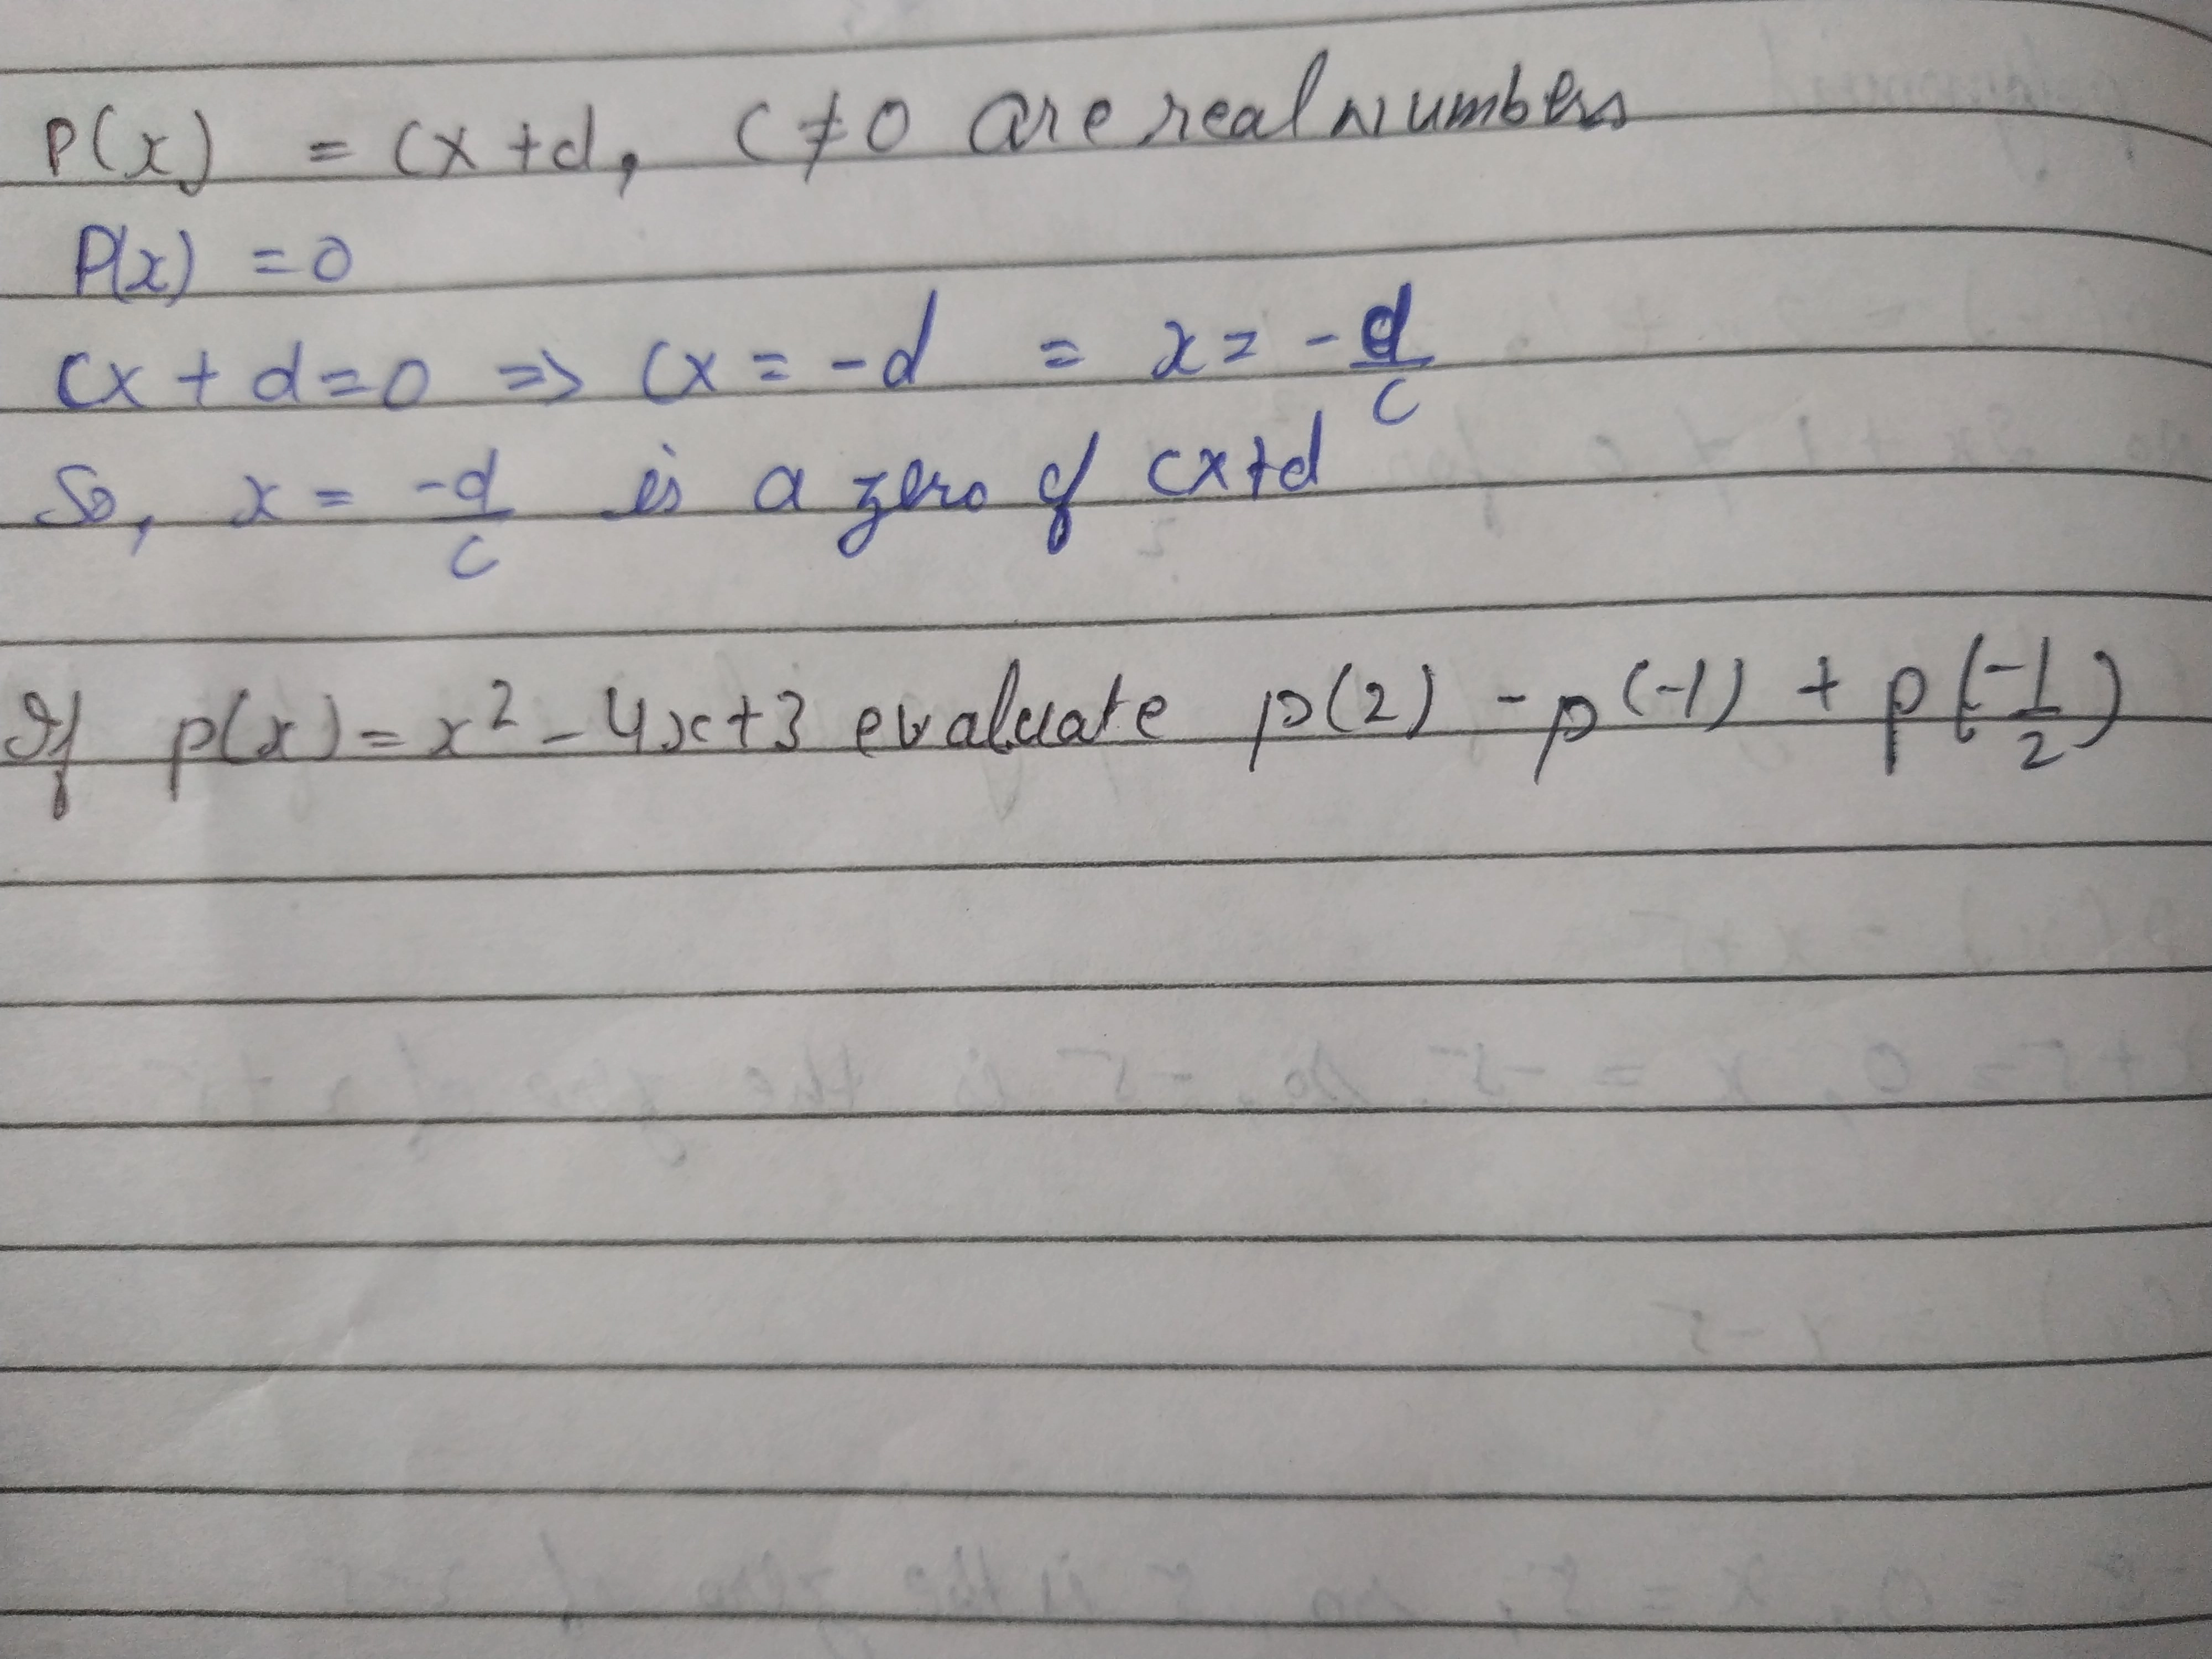 P(x) = cx + d, c ≠ 0 are real numbers
P(x) = 0
cx + d = 0 => cx = -d = x = -d/c
So, x = -d/c is a zero of cx+d
If p(x) = x² - 4x + 3 evaluate p(2) - p(-1) + p(-1/2)